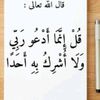 قال الله تعالى :
قُلْ إِنَّمَا أَدْعُو رَبِّي
وَلَا أُشْرِكُ بِهِ أَحَدًا